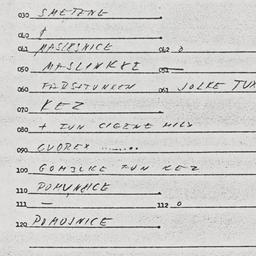 030 SMETENE
040
041 MASLESNICE 042 0
050 MASLINKKE 051 —
060 FABSTUNKEN 061 JOLKE TUN
070 KEZ
080 + TUN CIGENE MILY
090 CUOREX ........
100 GOMJLKE FUN KEZ
110 POMUNAICE
111 — 112 0
120 POMOSNICE